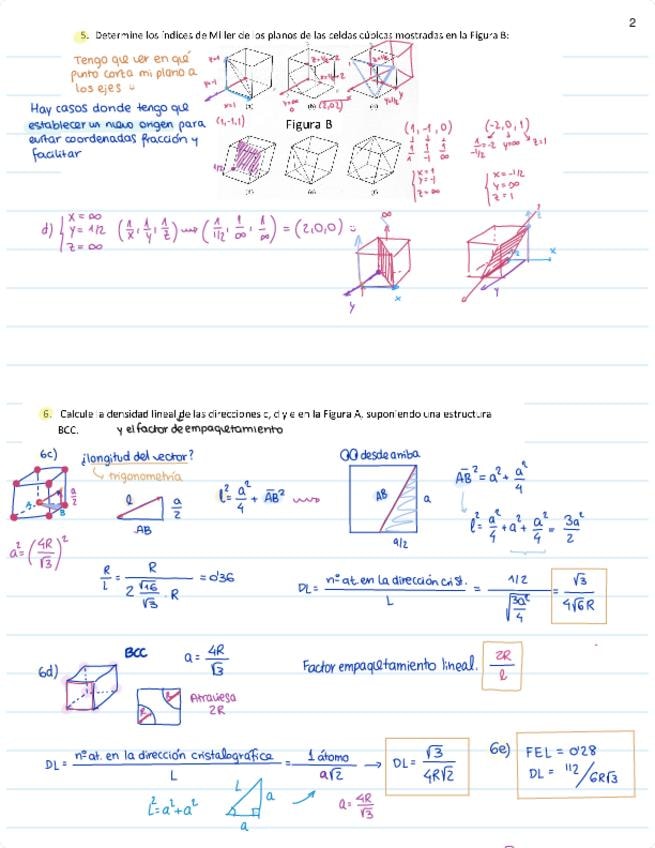 2
5. Determine los índices de Miller de los planos de las celdas cúbicas mostradas en la Figura B:
Tengo que ver en qué
punto corta mi plano a
los ejes
Hay casos donde tengo que
establecer un nuevo origen para
evitar coordenadas fracción y
facilitar
(1,-1,1)
Figura B
(1,-1,0)
1/1 1/-1 1/∞
x=1
y=-1
z=∞
(-2,0,1)
1/-1/2=-2 y=∞ z=1
x=-1/2
y=∞
z=1
d) x=∞
y=1/2
z=∞
(1/x, 1/y, 1/z) ⟿ (1/1/2, 1/∞, 1/∞) = (2,0,0)
∞
x
y
x
y
6. Calcule la densidad lineal de las direcciones c, d y e en la Figura A, suponiendo una estructura
BCC. y el factor de empaquetamiento
6c) ¿longitud del vector?
trigonometría
l a/2
AB
l²=a²/4+AB²
desde arriba
AB a
a/2
AB²=a²+a²/4
l²=a²/4+a²+a²/4=3a²/2
a²=(4R/√3)²
R/L = R/(2 √16/√3 · R) = 0'36
DL = nº at. en la dirección crist./L = 1/2/√(3a²/4) = √3/4√6R
6d)
BCC
a=4R/√3
Atraviesa
2R
Factor empaquetamiento lineal. 2R/l
DL = nº at. en la dirección cristalográfica/L = 1 átomo/a√2 → DL=√3/4R√2
l²=a²+a²
L a
a
a=4R/√3
6e) FEL = 0'28
DL = 1/2/6R√3